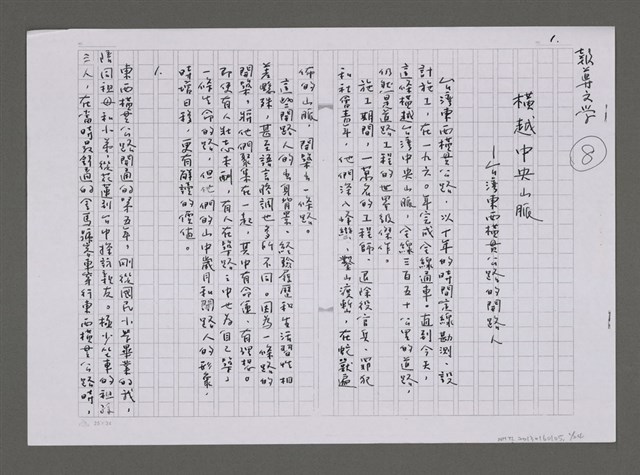 1.
報導文學
8
橫越中央山脈
—台灣東西橫貫公路的開路人
台灣東西橫貫公路,以十年的時間完線勘測、設
計施工,在一九六〇年完成全線通車。直到今天,
這條橫越台灣中央山脈,全線三百五十公里的道路,
仍然是道路工程的世界級傑作。
施工期間,一萬名的工程師、退除役官兵、罪犯
和社會青年,他們深入峰巒、鑿山渡塹,在蛇獸遍
佈的山脈,開築出一條路。
這些開路人的出身背景、經驗履歷和生活習性相
差懸殊,甚至語言腔調也多所不同。因為一條路的
開築,將他們聚集在一起,其中有命運、有理想。
即便有人壯志未酬,有人在築路之中也為自己築了
一條生命的路,但他們的山中歲月和開路人的形象,
時增日移,更有解讀的價值。
1.
東西橫貫公路開通的第五年,剛從國民小學畢業的我,
陪同祖母和小弟,從花蓮到台中探訪親友。極少坐車的祖孫
三人,在當時最舒適的金馬號客車穿行東西橫貫公路時,